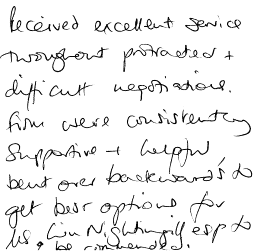 Received excellent service
throughout protracted +
difficult negotiations.
Firm were consistently
supportive + helpful
bent over backwards to
get best options for
us, esp to
be commended.